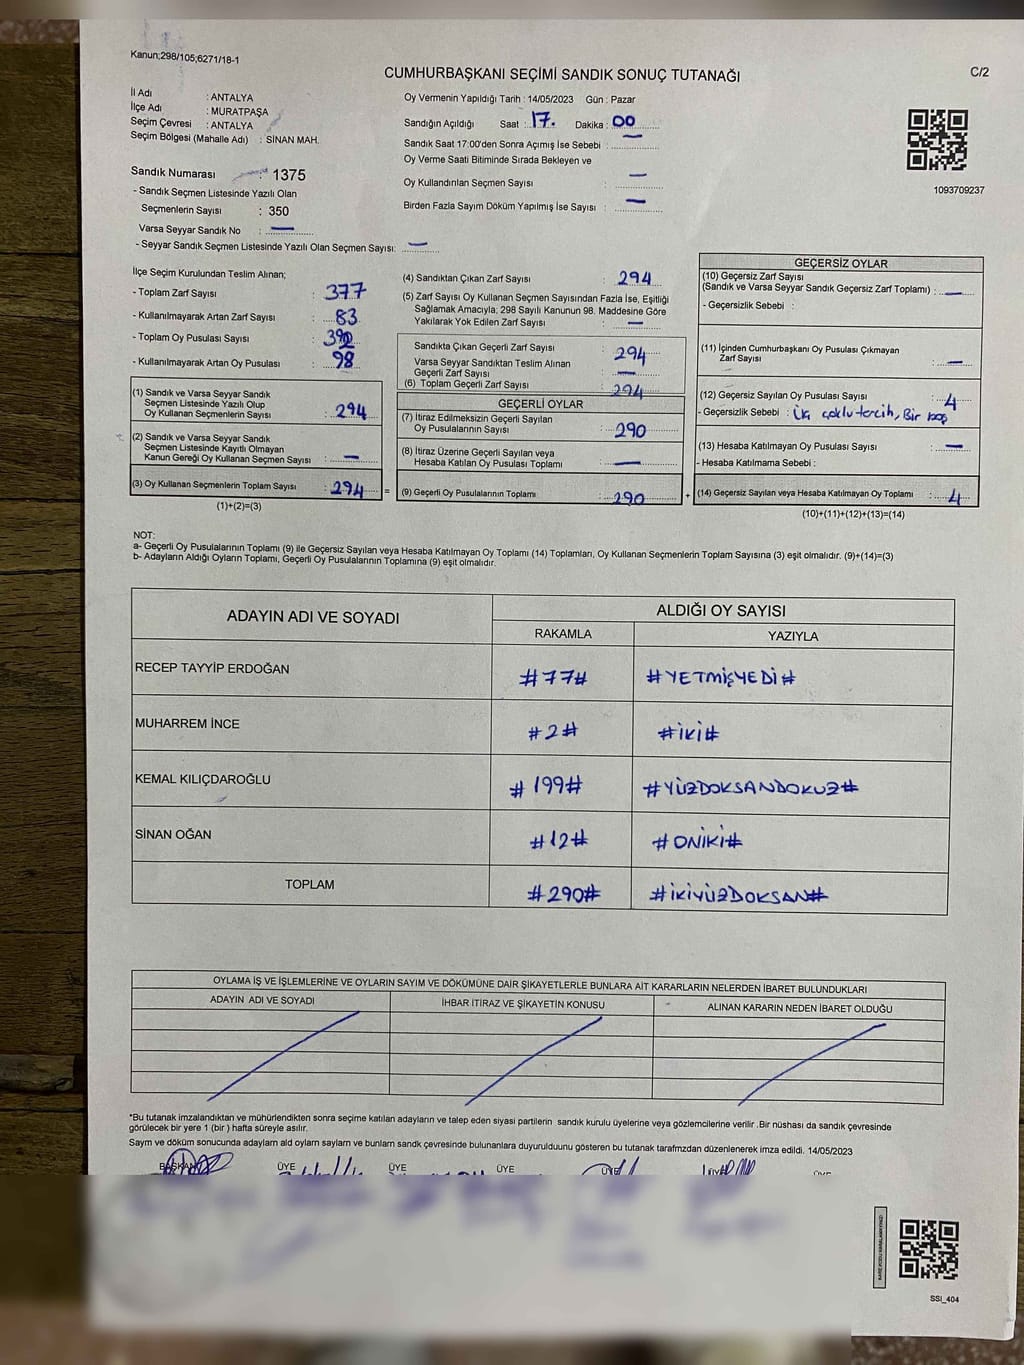 Kanun;298/105;6271/18-1
CUMHURBAŞKANI SEÇİMİ SANDIK SONUÇ TUTANAĞI
C/2
İl Adı : ANTALYA
İlçe Adı : MURATPAŞA
Seçim Çevresi : ANTALYA
Seçim Bölgesi (Mahalle Adı) : SİNAN MAH.
Oy Vermenin Yapıldığı Tarih : 14/05/2023 Gün : Pazar
Sandığın Açıldığı Saat : 17. Dakika : 00
Sandık Saat 17:00'den Sonra Açımış İse Sebebi : —
Oy Verme Saati Bitiminde Sırada Bekleyen ve
Oy Kullandırılan Seçmen Sayısı : —
Birden Fazla Sayım Döküm Yapılmış İse Sayısı : —
1093709237
Sandık Numarası 1375
- Sandık Seçmen Listesinde Yazılı Olan
Seçmenlerin Sayısı : 350
Varsa Seyyar Sandık No : —
- Seyyar Sandık Seçmen Listesinde Yazılı Olan Seçmen Sayısı: —
İlçe Seçim Kurulundan Teslim Alınan;
- Toplam Zarf Sayısı : 377
- Kullanılmayarak Artan Zarf Sayısı : 83
- Toplam Oy Pusulası Sayısı :
- Kullanılmayarak Artan Oy Pusulası : 98
(1) Sandık ve Varsa Seyyar Sandık
Seçmen Listesinde Yazılı Olup
Oy Kullanan Seçmenlerin Sayısı : 294
(2) Sandık ve Varsa Seyyar Sandık
Seçmen Listesinde Kayıtlı Olmayan
Kanun Gereği Oy Kullanan Seçmen Sayısı : —
(3) Oy Kullanan Seçmenlerin Toplam Sayısı : 294
(1)+(2)=(3)
=
(4) Sandıktan Çıkan Zarf Sayısı : 294
(5) Zarf Sayısı Oy Kullanan Seçmen Sayısından Fazla İse, Eşitliği
Sağlamak Amacıyla, 298 Sayılı Kanunun 98. Maddesine Göre
Yakılarak Yok Edilen Zarf Sayısı : —
Sandıkta Çıkan Geçerli Zarf Sayısı : 294
Varsa Seyyar Sandıktan Teslim Alınan
Geçerli Zarf Sayısı : —
(6) Toplam Geçerli Zarf Sayısı : 294
GEÇERLİ OYLAR
(7) İtiraz Edilmeksizin Geçerli Sayılan
Oy Pusulalarının Sayısı : 290
(8) İtiraz Üzerine Geçerli Sayılan veya
Hesaba Katılan Oy Pusulası Toplamı : —
(9) Geçerli Oy Pusulalarının Toplamı : 290
+
GEÇERSİZ OYLAR
(10) Geçersiz Zarf Sayısı
(Sandık ve Varsa Seyyar Sandık Geçersiz Zarf Toplamı) : —
- Geçersizlik Sebebi :
(11) İçinden Cumhurbaşkanı Oy Pusulası Çıkmayan
Zarf Sayısı : —
(12) Geçersiz Sayılan Oy Pusulası Sayısı : 4
- Geçersizlik Sebebi : Üç çoklu tercih, Bir boş
(13) Hesaba Katılmayan Oy Pusulası Sayısı : —
- Hesaba Katılmama Sebebi :
(14) Geçersiz Sayılan veya Hesaba Katılmayan Oy Toplamı : 4
(10)+(11)+(12)+(13)=(14)
NOT:
a- Geçerli Oy Pusulalarının Toplamı (9) ile Geçersiz Sayılan veya Hesaba Katılmayan Oy Toplamı (14) Toplamları, Oy Kullanan Seçmenlerin Toplam Sayısına (3) eşit olmalıdır. (9)+(14)=(3)
b- Adayların Aldığı Oyların Toplamı, Geçerli Oy Pusulalarının Toplamına (9) eşit olmalıdır.
ADAYIN ADI VE SOYADI ALDIĞI OY SAYISI
RAKAMLA YAZIYLA
RECEP TAYYİP ERDOĞAN #77# #YETMİŞYEDİ#
MUHARREM İNCE #2# #İKİ#
KEMAL KILIÇDAROĞLU #199# #YÜZDOKSANDOKUZ#
SİNAN OĞAN #12# #ONİKİ#
TOPLAM #290# #İKİYÜZDOKSAN#
OYLAMA İŞ VE İŞLEMLERİNE VE OYLARIN SAYIM VE DÖKÜMÜNE DAİR ŞİKAYETLERLE BUNLARA AİT KARARLARIN NELERDEN İBARET BULUNDUKLARI
ADAYIN ADI VE SOYADI İHBAR İTİRAZ VE ŞİKAYETİN KONUSU ALINAN KARARIN NEDEN İBARET OLDUĞU
*Bu tutanak imzalandıktan ve mühürlendikten sonra seçime katılan adayların ve talep eden siyasi partilerin sandık kurulu üyelerine veya gözlemcilerine verilir .Bir nüshası da sandık çevresinde
görülecek bir yere 1 (bir ) hafta süreyle asılır.
Sayım ve döküm sonucunda adayların ald oyların sayların ve bunların sandk çevresinde bulunanlara duyurulduunu gösteren bu tutanak tarafmzdan düzenlenerek imza edildi. 14/05/2023
BAŞKAN ÜYE ÜYE ÜYE ÜYE ÜYE ÜYE
SSI_404